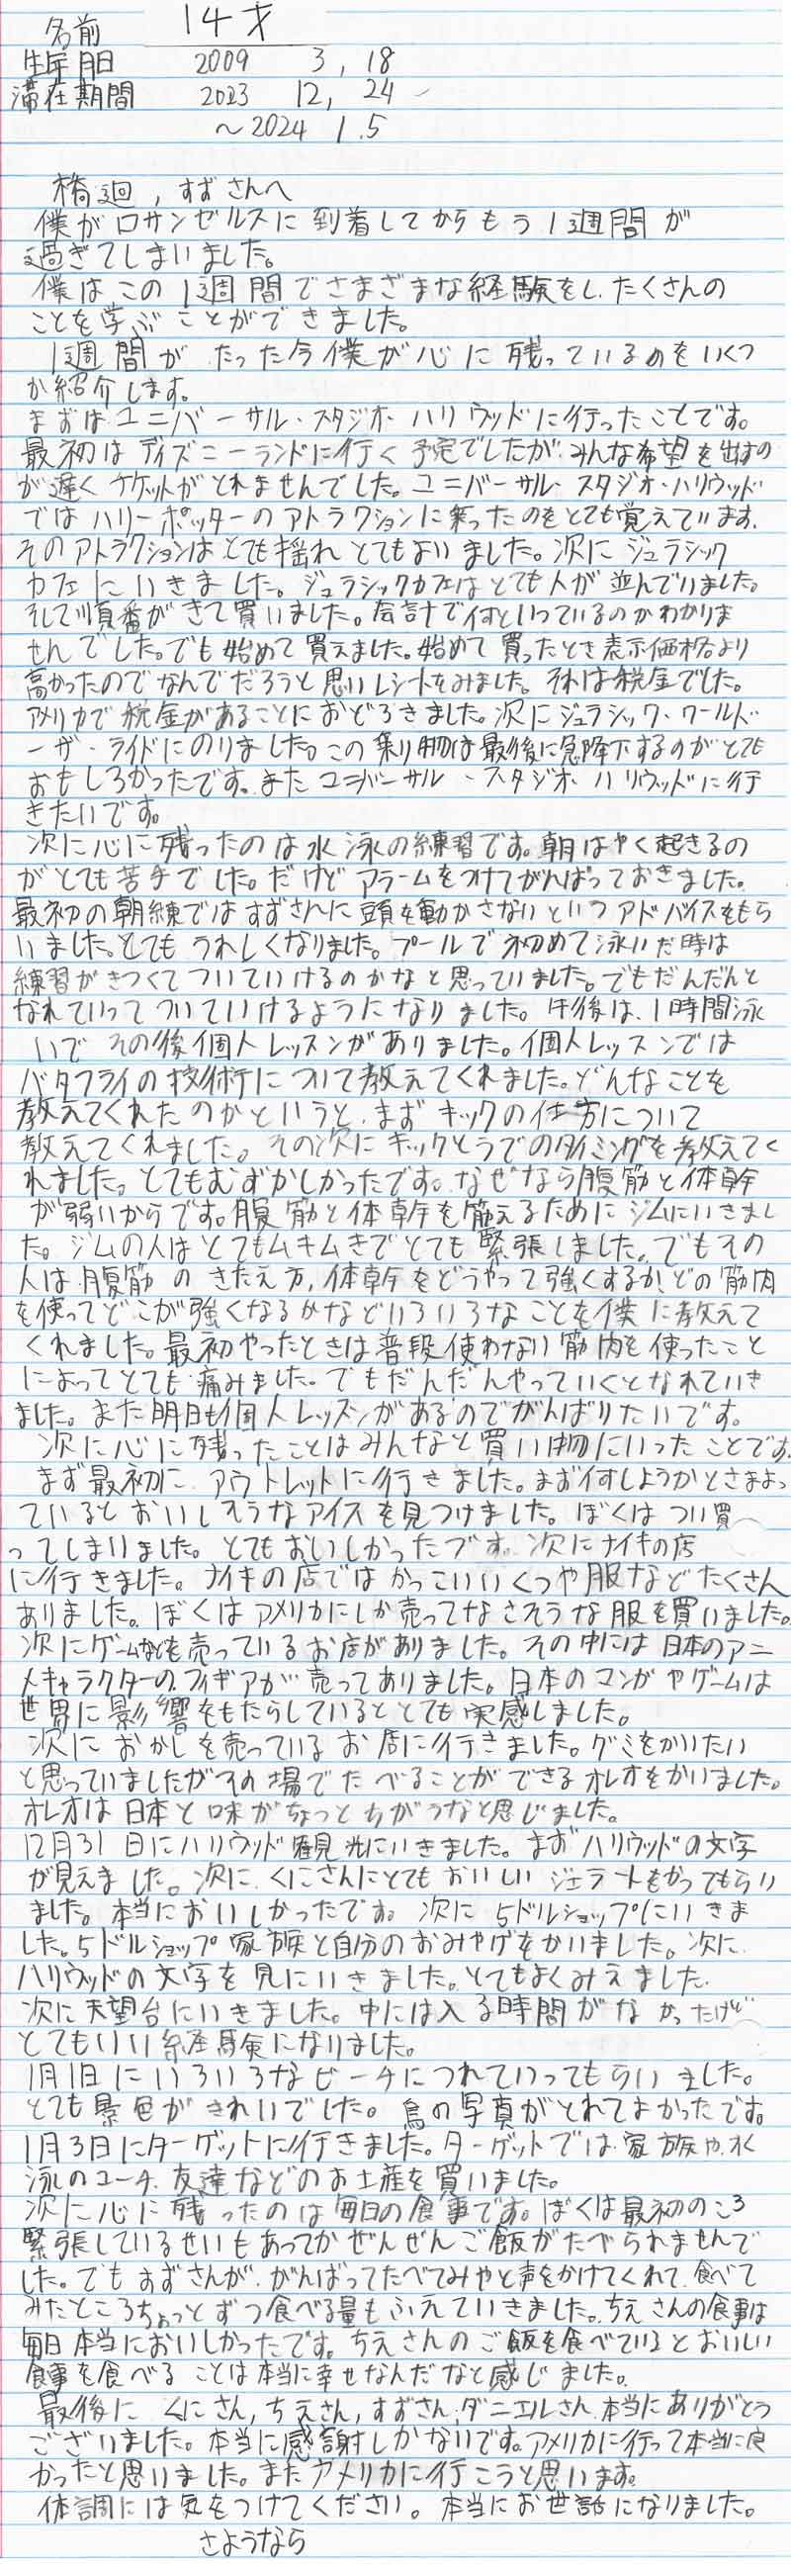 名前 14才
生年月日 2009 3, 18
滞在期間 2023 12, 24
〜2024 1.5
橋廻, すずさんへ
僕がロサンゼルスに到着してからもう1週間が
過ぎてしまいました。
僕はこの1週間でさまざまな経験をし、たくさんの
ことを学ぶことができました。
1週間がたった今僕が心に残っているのをいくつ
か紹介します。
まずはユニバーサル・スタジオ・ハリウッドに行ったことです。
最初はディズニーランドに行く予定でしたが、みんな希望を出すの
が遅くチケットがとれませんでした。ユニバーサル・スタジオ・ハリウッド
ではハリーポッターのアトラクションに乗ったのをとても覚えています。
そのアトラクションはとても揺れとてもよいました。次にジュラシック
カフェにいきました。ジュラシックカフェはとても人が並んでいました。
そして順番がきて買いました。会計で何といっているのかわかりま
せんでした。でも始めて買えました。始めて買ったとき表示価格より
高かったのでなんでだろうと思いレシートをみました。それは税金でした。
アメリカで税金があることにおどろきました。次にジュラシック・ワールド
ーザ・ライドにのりました。この乗り物は最後に急降下するのがとても
おもしろかったです。またユニバーサル・スタジオ・ハリウッドに行
きたいです。
次に心に残ったのは水泳の練習です。朝はやく起きるの
がとても苦手でした。だけどアラームをつけてがんばっておきました。
最初の朝練ではすずさんに頭を動かさないというアドバイスをもら
いました。とてもうれしくなりました。プールで初めて泳いだ時は
練習がきつくてついていけるのかなと思っていました。でもだんだんと
なれていってついていけるようになりました。午後は、1時間泳
いでその後個人レッスンがありました。個人レッスンでは
バタフライの技術について教えてくれました。どんなことを
教えてくれたのかというと、まずキックの仕方について
教えてくれました。その次にキックとうでのタイミングを教えてく
れました。とてもむずかしかったです。なぜなら腹筋と体幹
が弱いからです。腹筋と体幹を鍛えるためにジムにいきまし
た。ジムの人はとてもムキムキでとても緊張しました。でもその
人は、腹筋のきたえ方、体幹をどうやって強くするか、どの筋肉
を使ってどこが強くなるかなどいろいろなことを僕に教えて
くれました。最初やったときは普段使わない筋肉を使ったこと
によってとても痛みました。でもだんだんやっていくとなれていき
ました。また明日も個人レッスンがあるのでがんばりたいです。
次に心に残ったことはみんなと買い物にいったことです。
まず最初に、アウトレットに行きました。まず何しようかとさまよっ
ているとおいしそうなアイスを見つけました。ぼくはつい買
ってしまいました。とてもおいしかったです。次にナイキの店
に行きました。ナイキの店ではかっこいいくつや服などたくさん
ありました。ぼくはアメリカにしか売ってなさそうな服を買いました。
次にゲームなどを売っているお店がありました。その中には日本のアニ
メキャラクターのフィギアが売ってありました。日本のマンガやゲームは
世界に影響をもたらしているととても実感しました。
次におかしを売っているお店に行きました。グミをかいたい
と思っていましたがその場でたべることができるオレオをかいました。
オレオは日本と味がちょっとちがうなと感じました。
12月31日にハリウッド観光にいきました。まずハリウッドの文字
が見えました。次に、くにさんにとてもおいしいジェラートをかってもらい
ました。本当においしかったです。次に5ドルショップにいきま
した。5ドルショップ家族と自分のおみやげをかいました。次に、
ハリウッドの文字を見にいきました。とてもよくみえました。
次に天望台にいきました。中には入る時間がなかったけど
とてもいい経験になりました。
1月1日にいろいろなビーチにつれていってもらいました。
とても景色がきれいでした。鳥の写真がとれてよかったです。
1月3日にターゲットに行きました。ターゲットでは、家族や、水
泳のコーチ、友達などのお土産を買いました。
次に心に残ったのは毎日の食事です。ぼくは最初のころ
緊張しているせいもあってかぜんぜんご飯がたべられませんで
した。でもすずさんが、がんばってたべてみやと声をかけてくれて、食べて
みたところちょっとずつ食べる量もふえていきました。ちえさんの食事は
毎日本当においしかったです。ちえさんのご飯を食べているとおいしい
食事を食べることは本当に幸せなんだなと感じました。
最後に くにさん, ちえさん, すずさん, ダニエルさん 本当にありがとう
ございました。本当に感謝しかないです。アメリカに行って本当に良
かったと思いました。またアメリカに行こうと思います。
体調には気をつけてください。本当にお世話になりました。
さようなら